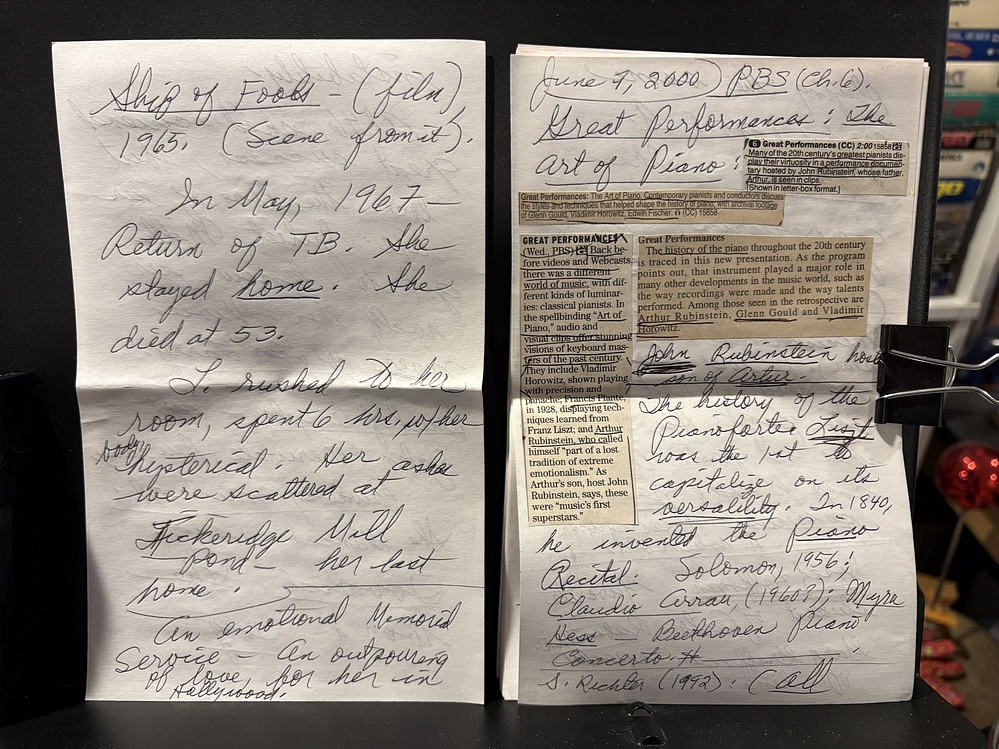 Ship of Fools - (film),
1965. (Scene from it).
In May, 1967 —
Return of T.B. She
stayed home. She
died at 53.
L. rushed to her
room, spent 6 hrs. w/her
body
hysterical. Her ashes
were scattered at
Tickeridge Mill
Pond - her last
home.
An emotional Memorial
Service - An outpouring
of love, for her in
Hollywood.
June 7, 2000) PBS (Ch. 6).
Great Performances: The
Art of Piano:
6 Great Performances (CC) 2:00 15858
Many of the 20th century's greatest pianists dis-
play their virtuosity in a performance documen-
tary hosted by John Rubinstein, whose father,
Arthur, is seen in clips.
[Shown in letter-box format.]
Great Performances: The Art of Piano. Contemporary pianists and conductors discuss
the styles and techniques that helped shape the history of piano, with archival footage
of Glenn Gould, Vladimir Horowitz, Edwin Fischer. (CC) 15858
GREAT PERFORMANCES
(Wed., PBS) Back be-
fore videos and Webcasts
there was a different
world of music, with dif-
ferent kinds of luminar-
ies: classical pianists. In
the spellbinding "Art of
Piano," audio and
visual clips offer stunning
visions of keyboard mas-
ters of the past century.
They include Vladimir
Horowitz, shown playing
with precision and
panache; Francis Plante,
in 1928, displaying tech-
niques learned from
Franz Liszt; and Arthur
Rubinstein, who called
himself "part of a lost
tradition of extreme
emotionalism." As
Arthur's son, host John
Rubinstein, says, these
were "music's first
superstars."
Great Performances
The history of the piano throughout the 20th century
is traced in this new presentation. As the program
points out, that instrument played a major role in
many other developments in the music world, such as
the way recordings were made and the way talents
performed. Among those seen in the retrospective are
Arthur Rubinstein, Glenn Gould and Vladimir
Horowitz.
John Rubinstein host
son of Artur.
The history of the
Pianoforte. Liszt
was the 1st to
capitalize on its
versatility. In 1840,
he invented the Piano
Recital: Solomon, 1956;
Claudio Arrau, (1960?); Myra
Hess - Beethoven Piano
Concerto #
S. Richter (1992). (all